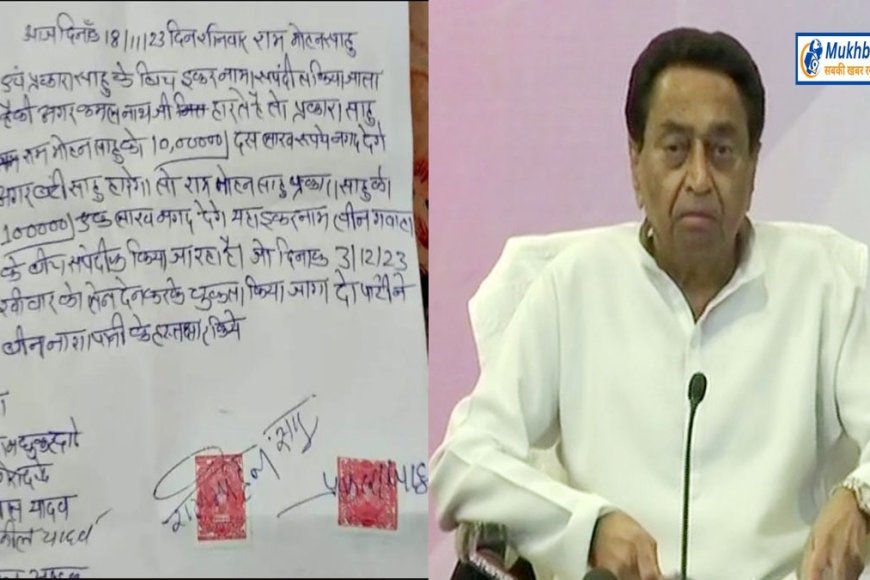 आज दिनाँक 18/11/23 दिन शनिवार राम मोहन साहु
एवं प्रकाश साहु के बिच इकरनामा संपदील किया जाता
है की अगर कमलनाथ जी हारते है तो प्रकाश साहु
राम मोहन साहु को 10,00000/ दस लाख रूपये नगद देगे
अगर बंटी साहु हारेगा तो राम मोहन साहु प्रकाश साहु को
100000/ एक लाख नगद देगे यह इकरनाम (तीन गवाहो)
के बीच संपदील किया जा रहा है। जो दिनाक 3/12/23
रवीवार को लेन देन करके चुकता किया जागा दो पार्टी ने
बीन ना शा पानी के हस्ताक्षर किये
यादव
यादव
Mukhb
सबकी खबर र